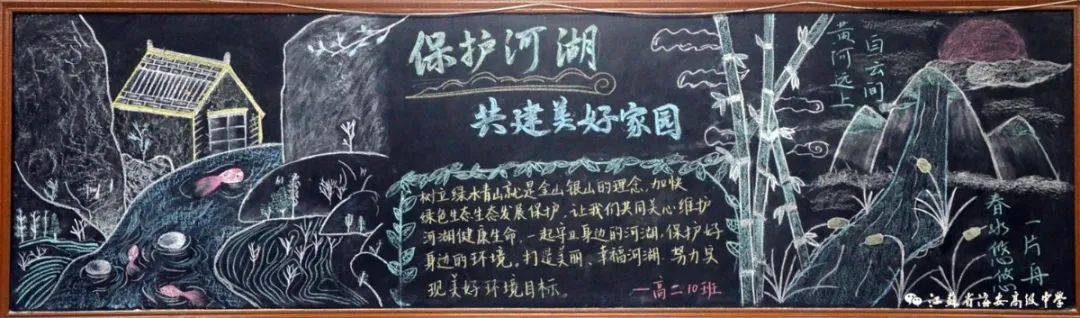 保护河湖
共建美好家园
树立绿水青山就是金山银山的理念,加快
绿色生态生态发展保护,让我们共同关心维护
河湖健康生命,一起寻且身边的河湖,保护好
身边的环境,打造美丽、幸福河湖 努力实
现美好环境目标。
—高二10班
黄河远上
白云间
一片舟
春水悠悠
江苏省海安高级中学